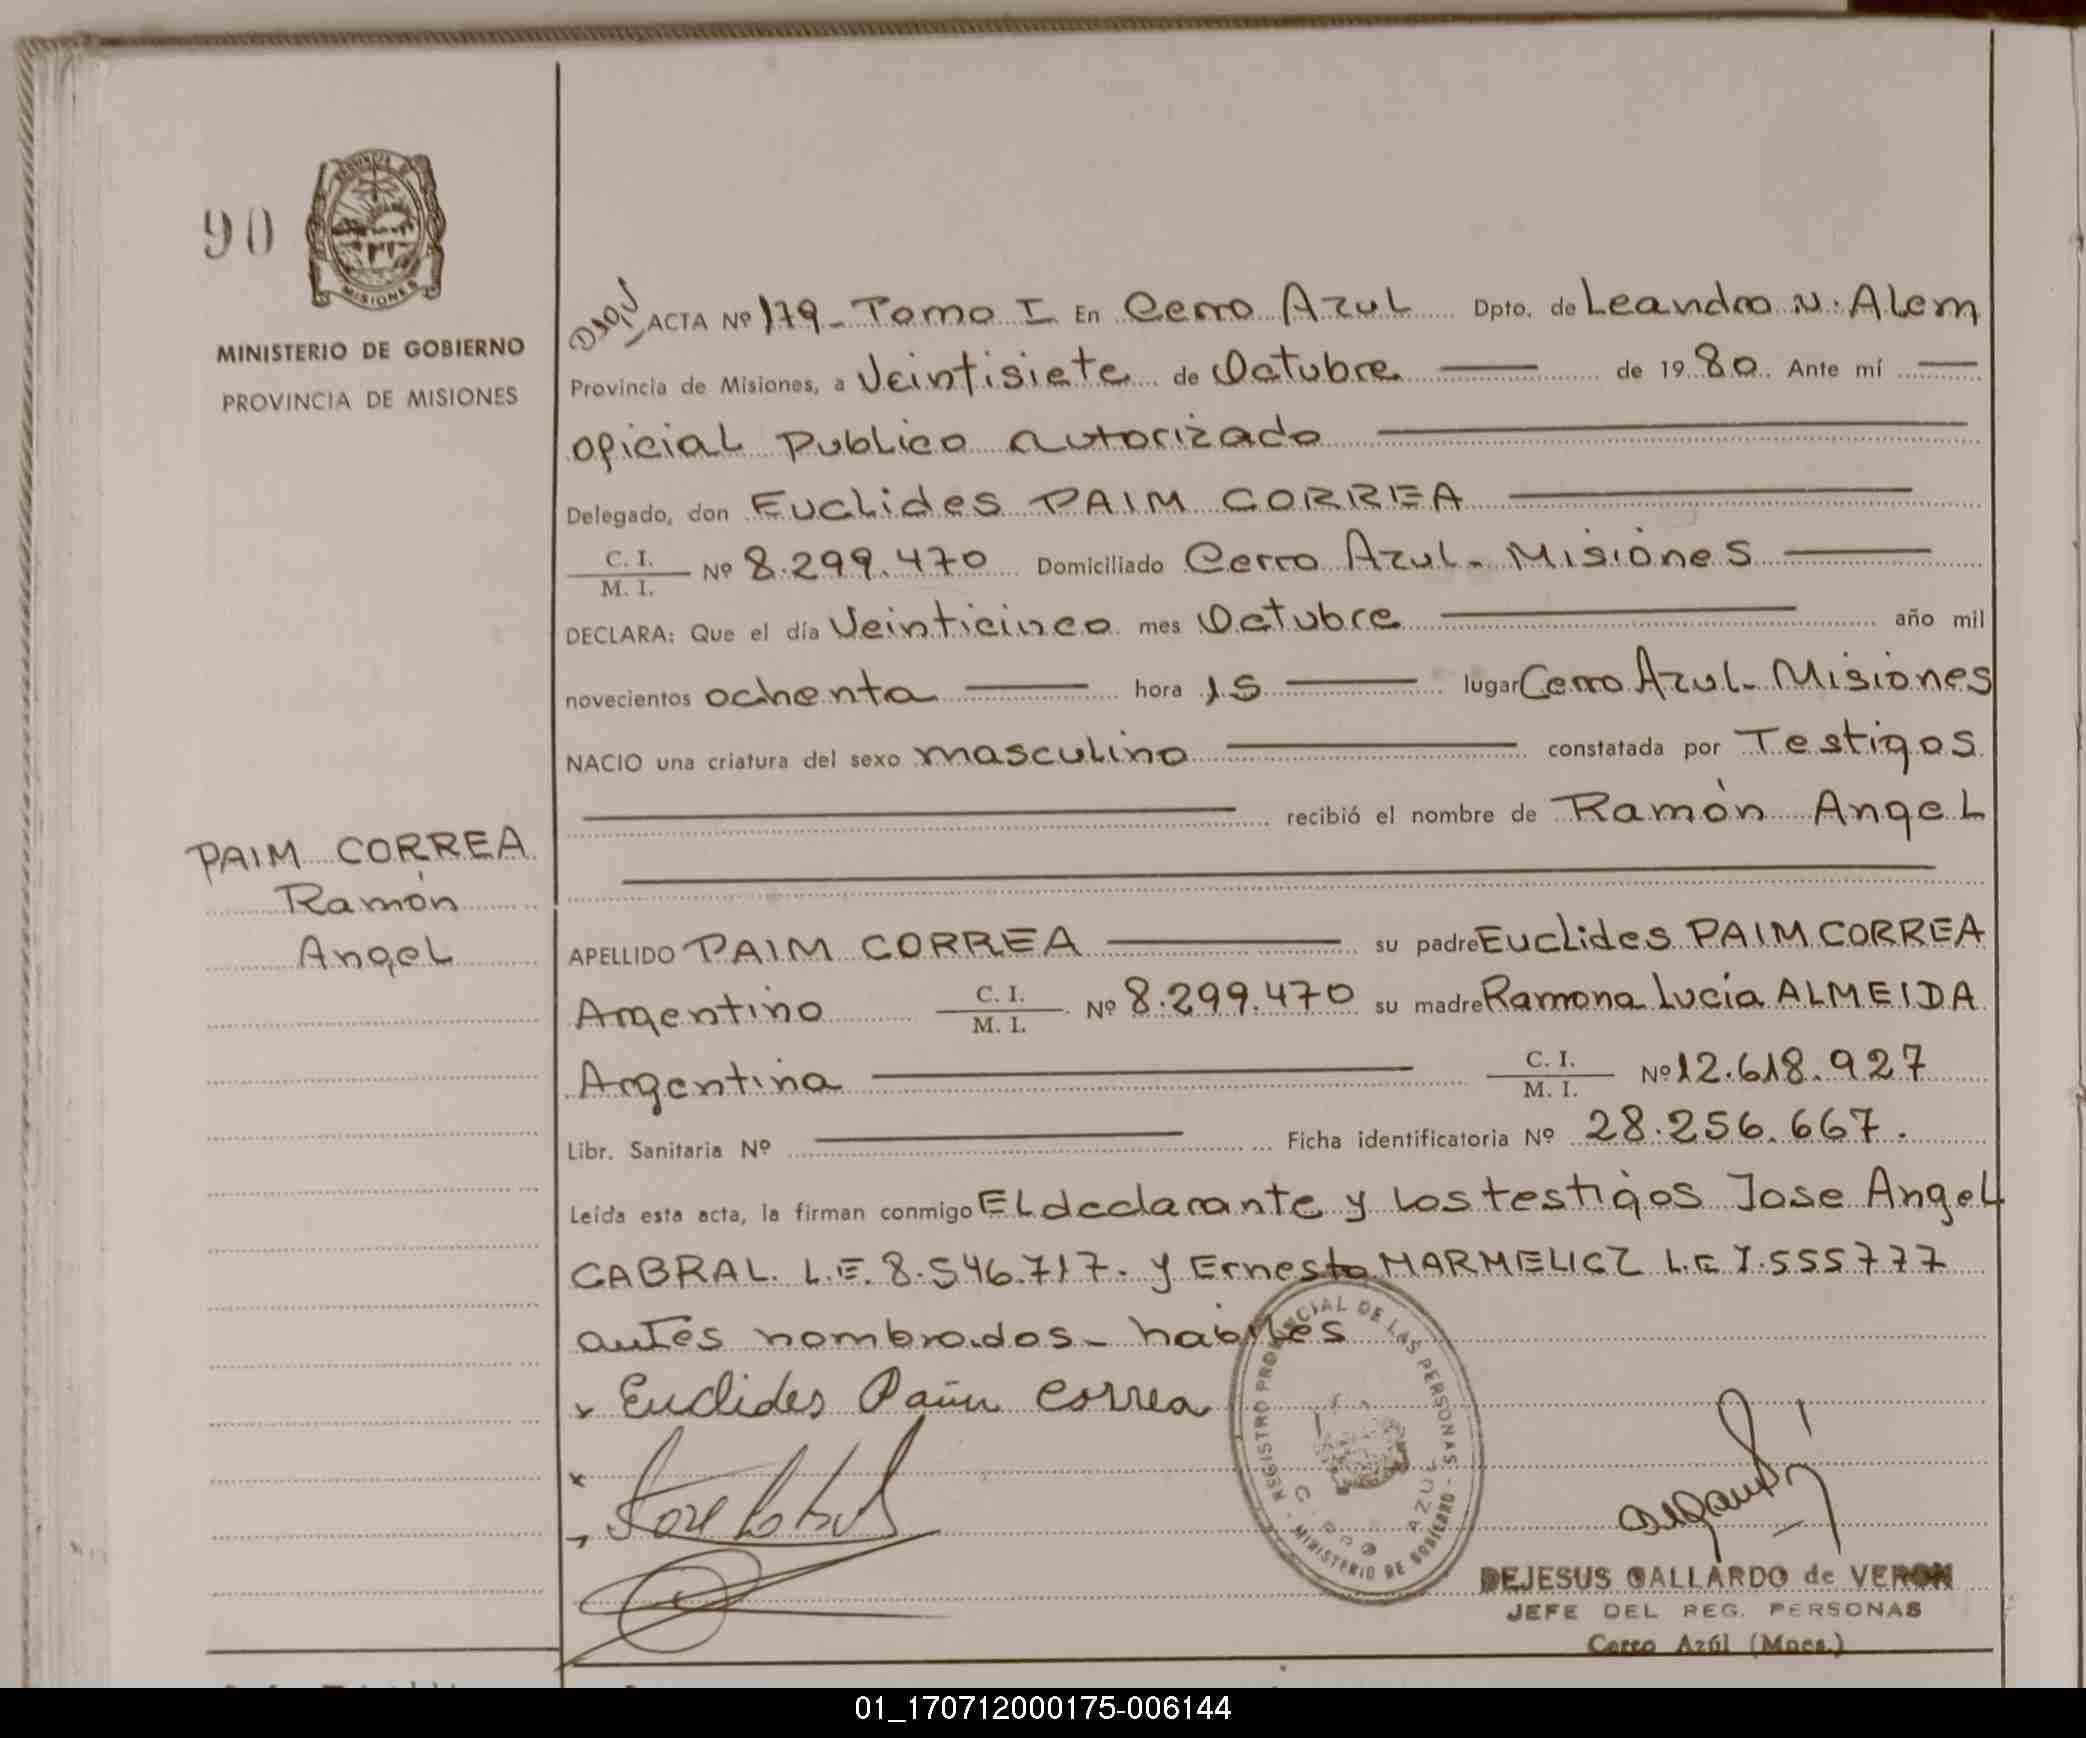 90
MISIONES
MINISTERIO DE GOBIERNO
PROVINCIA DE MISIONES
PAIM CORREA
Ramón
Angel
ACTA Nº 179 - Tomo I En Cerro Azul Dpto. de Leandro N. Alem
Provincia de Misiones, a Veintisiete de Octubre de 1980 Ante mí
oficial Publico autorizado
Delegado, don Euclides PAIM CORREA
C. I.
M. I. Nº 8.299.470 Domiciliado Cerro Azul - Misiones
DECLARA: Que el día Veinticinco mes Octubre año mil
novecientos ochenta hora 15 lugar Cerro Azul - Misiones
NACIO una criatura del sexo masculino constatada por Testigos
recibió el nombre de Ramón Angel
APELLIDO PAIM CORREA su padre Euclides PAIM CORREA
Argentino C. I.
M. I. Nº 8.299.470 su madre Ramona Lucia ALMEIDA
Argentina C. I.
M. I. Nº 12.618.927
Libr. Sanitaria Nº Ficha identificatoria Nº 28.256.667.
Leída esta acta, la firman conmigo El declarante y los testigos Jose Angel
CABRAL. L.E. 8.546.717. y Ernesto L.E 7.555777
antes nombrados - habiles
Euclides Paim Correa
REGISTRO PROVINCIAL DE LAS PERSONAS - MINISTERIO DE GOBIERNO -
CERRO AZUL
DEJESUS GALLARDO de VERON
JEFE DEL REG. PERSONAS
Cerro Azúl (Mnes.)
01_170712000175-006144